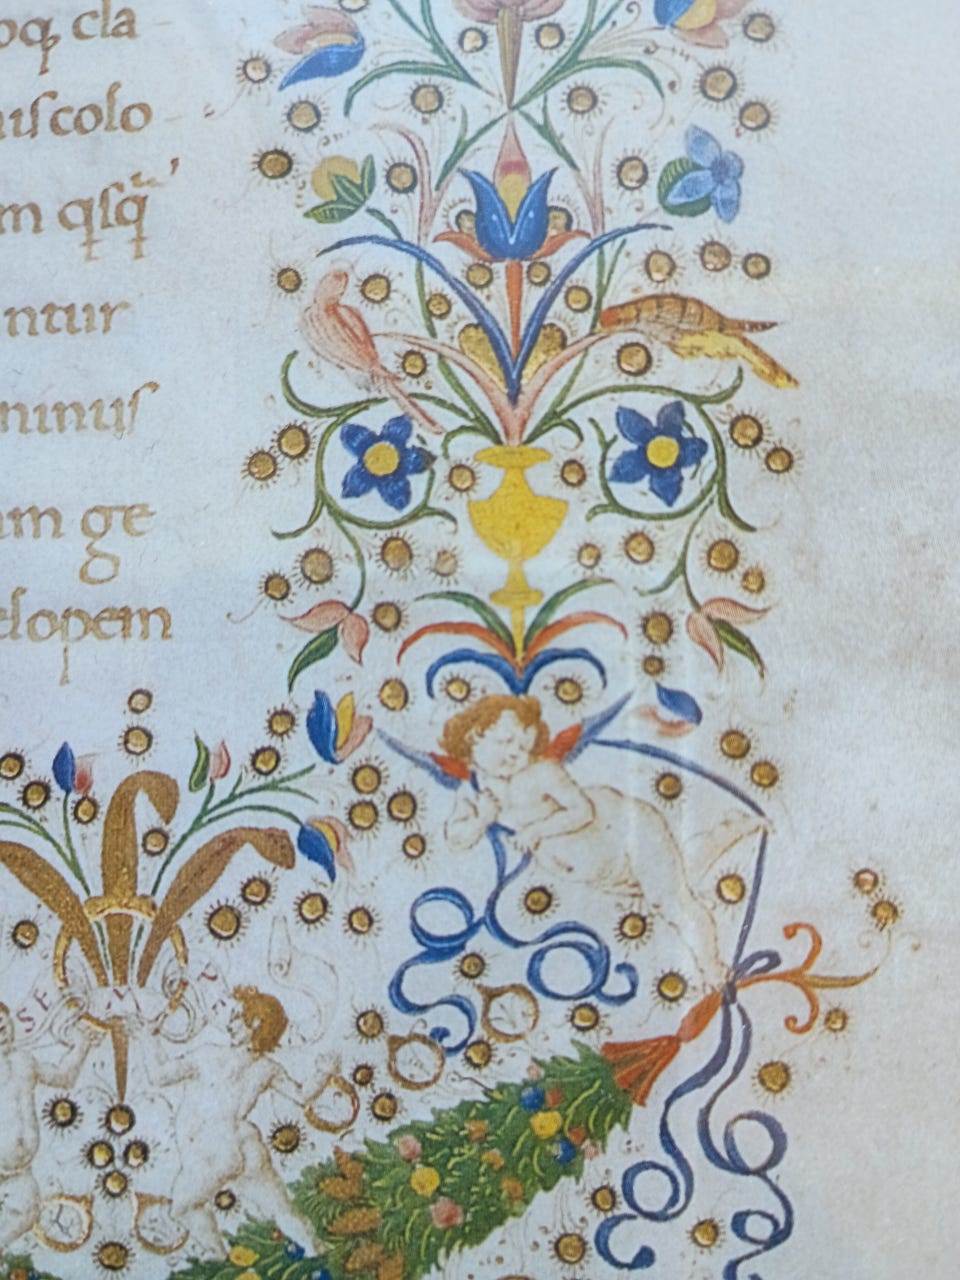 oꝗ cla
uiſcolo
m qſq̃
ntur
ninuſ
am ge
elopem
SE V